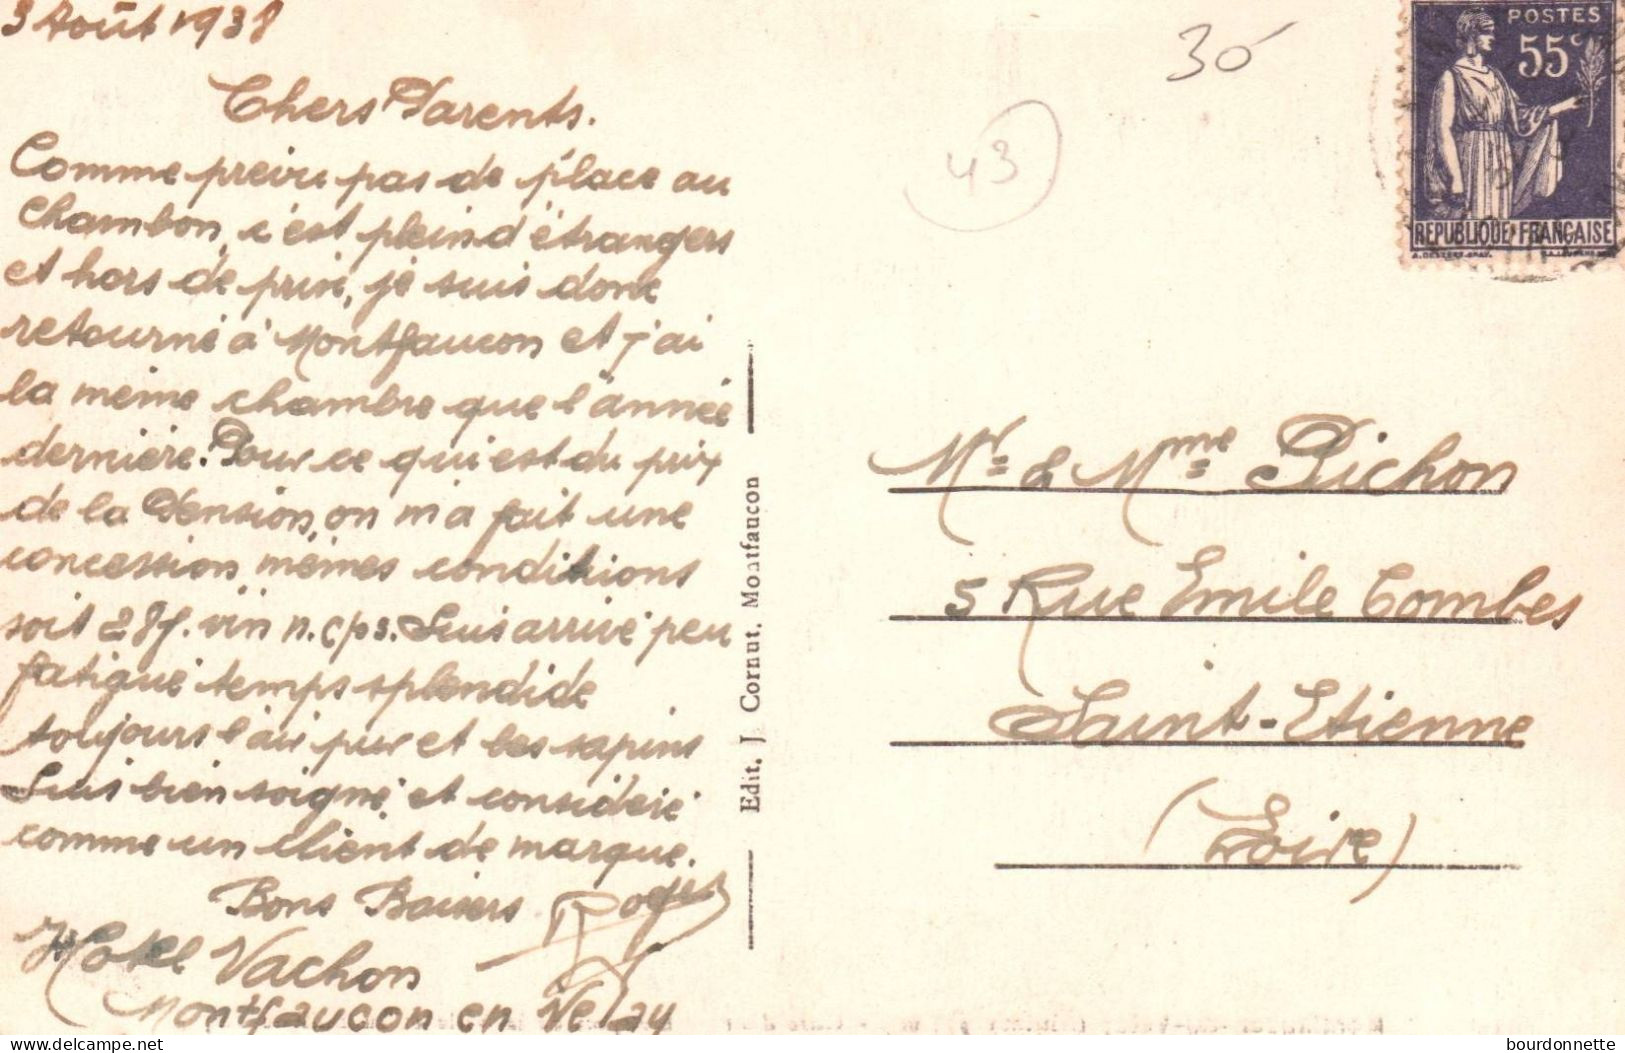 3 Août 1938
Chers Parents.
Comme prévu pas de place au
Chambon, c'est plein d'étrangers
et hors de prix, je suis donc
retourné à Montfaucon et j'ai
la même chambre que l'année
dernière. Pour ce qui est du prix
de la Pension, on m'a fait une
concession, mêmes conditions
soit 28f. vin n. cps. Suis arrivé peu
fatigué temps splendide
toujours l'air pur et les sapins
Suis bien soigné, et considéré
comme un client de marque.
Bons Baisers Roger
Hôtel Vachon
Montfaucon en Velay
Edit. J. Cornut. Montfaucon
30
43
POSTES
55c
REPUBLIQUE FRANÇAISE
Mr & Mme Pichon
5 Rue Emile Combes
Saint-Etienne
(Loire)
delcampe.net
bourdonnette